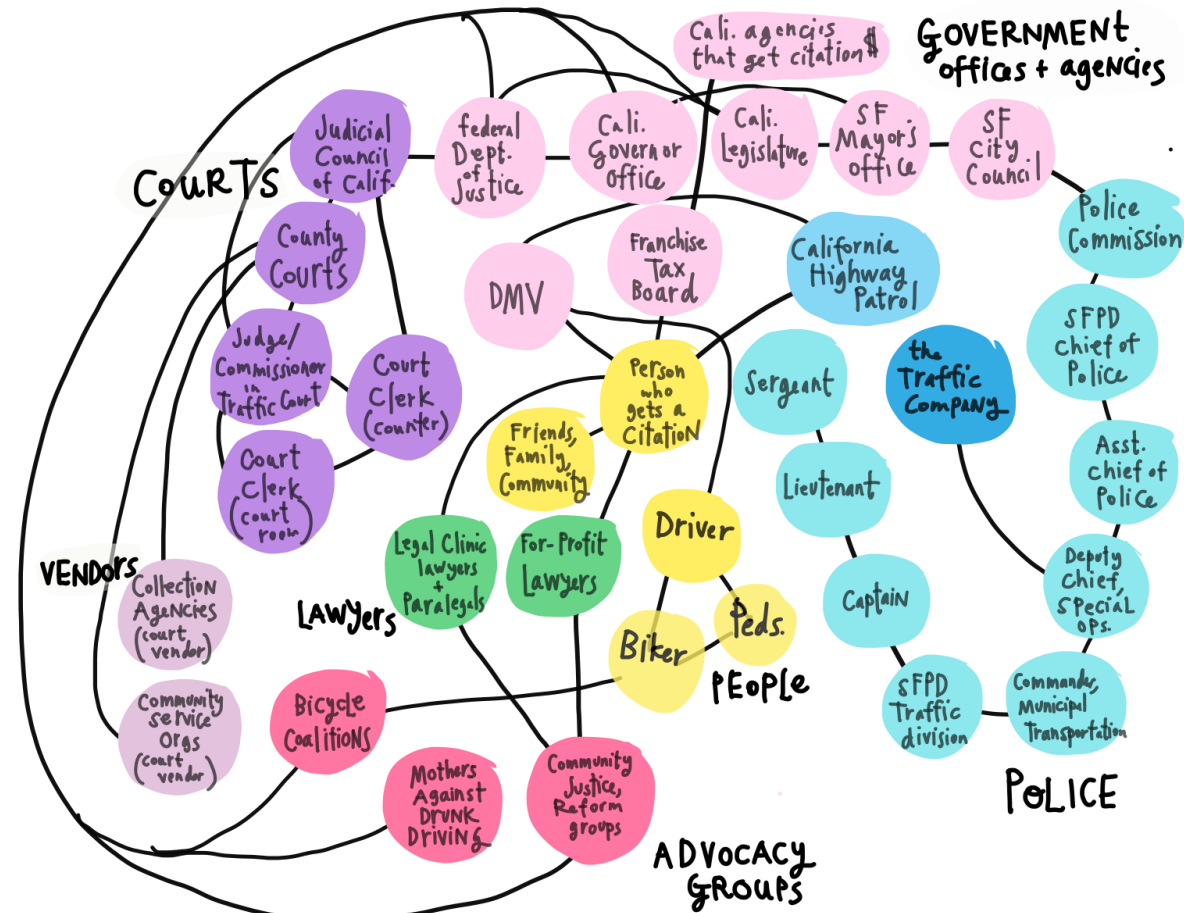 Cali. agencies
that get citation $
GOVERNMENT
offices + agencies
COURTS
Judicial
Council
of Calif.
federal
Dept.
of
Justice
Cali.
Governor
office
Cali.
Legislature
SF
Mayor's
office
SF
City
Council
Police
Commission
County
Courts
DMV
Franchise
Tax
Board
California
Highway
Patrol
SFPD
Chief of
Police
Judge/
Commissioner
in
Traffic Court
Court
Clerk
(counter)
Person
who
gets a
Citation
Sergeant
the
Traffic
Company
Friends,
Family,
Community
Court
Clerk
(court
room)
Lieutenant
Asst.
chief of
Police
Legal Clinic
lawyers
+
Paralegals
For-Profit
Lawyers
Driver
VENDORS
Collection
Agencies
(court
vendor)
LAWyers
Captain
Deputy
Chief,
Special
ops.
Biker
Peds.
PEOPLE
Community
Service
Orgs
(court
vendor)
Bicycle
Coalitions
SFPD
Traffic
division
Commander,
Municipal
Transportation
POLICE
Mothers
Against
Drunk
Driving
Community
Justice,
Reform
groups
ADVOCACY
GROUPS